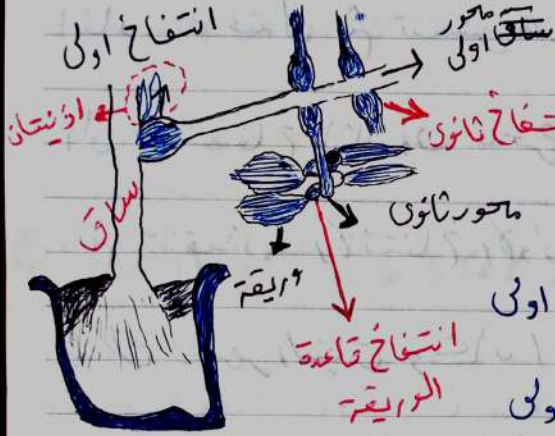 انتفاخ اولى
محور
اولى
اذينتان
انتفاخ ثانوى
ساق
محور ثانوى
وريقة
اولى
انتفاخ قاعدة
الوريقة